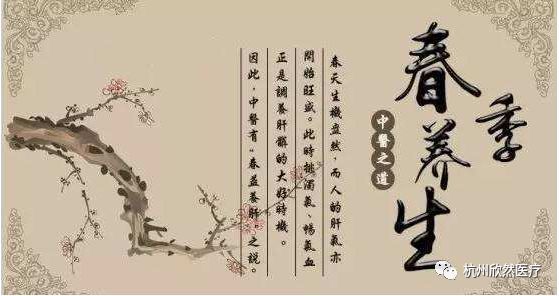 春季养生
中醫之道
春天生機盎然，而人的肝氣亦
開始旺盛。此時排濁氣、暢氣血
正是調養肝髒的大好時機。
因此，中醫有“春益養肝”之說。
杭州欣然医疗